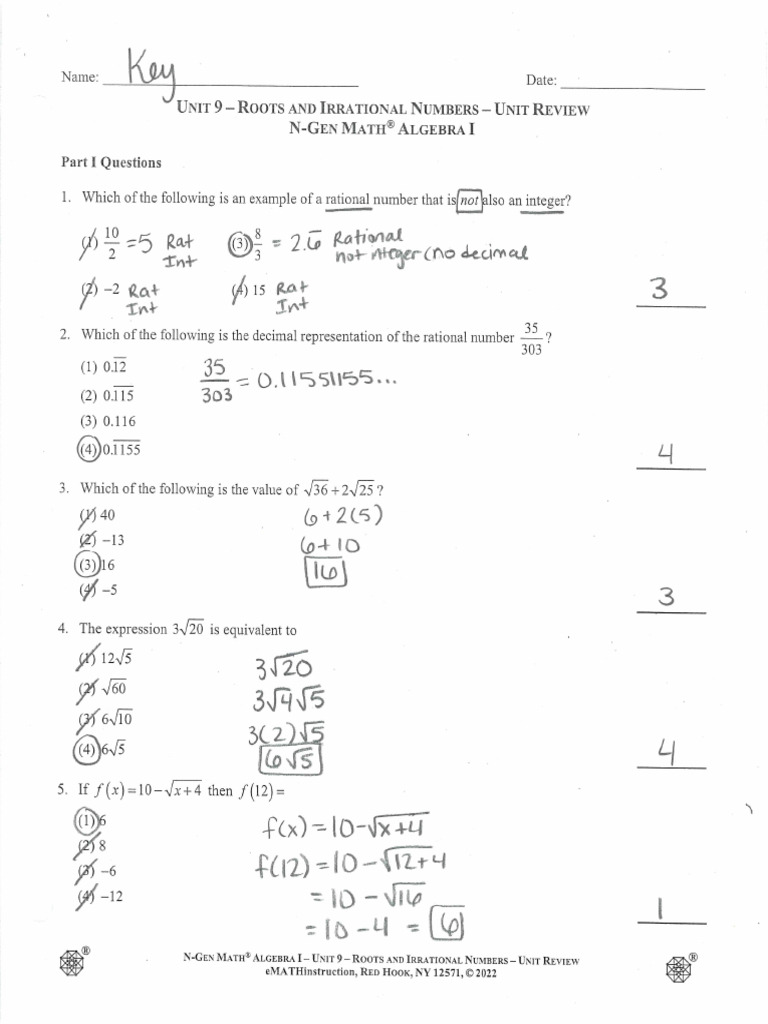 Name: Key Date:
UNIT 9 – ROOTS AND IRRATIONAL NUMBERS – UNIT REVIEW
N-GEN MATH® ALGEBRA I
Part I Questions
1. Which of the following is an example of a rational number that is not also an integer?
(1) 10/2 = 5 Rat Int (3) 8/3 = 2.6̅ Rational not nteger (no decimal
(2) −2 Rat Int (4) 15 Rat Int
3
2. Which of the following is the decimal representation of the rational number 35/303 ?
(1) 0.1̅2̅ 35/303 = 0.11551155...
(2) 0.1̅1̅5̅
(3) 0.116
(4) 0.1̅1̅5̅5̅
4
3. Which of the following is the value of √36 + 2√25 ?
(1) 40 6 + 2(5)
(2) −13 6 + 10
(3) 16 16
(4) −5
3
4. The expression 3√20 is equivalent to
(1) 12√5 3√20
(2) √60 3√4√5
(3) 6√10 3(2)√5
(4) 6√5 6√5
4
5. If f(x) = 10 − √(x+4) then f(12) =
(1) 6 f(x) = 10 − √(x+4)
(2) 8 f(12) = 10 − √(12+4)
(3) −6 = 10 − √16
(4) −12 = 10 − 4 = 6
1
N-GEN MATH® ALGEBRA I – UNIT 9 – ROOTS AND IRRATIONAL NUMBERS – UNIT REVIEW
eMATHinstruction, RED HOOK, NY 12571, © 2022